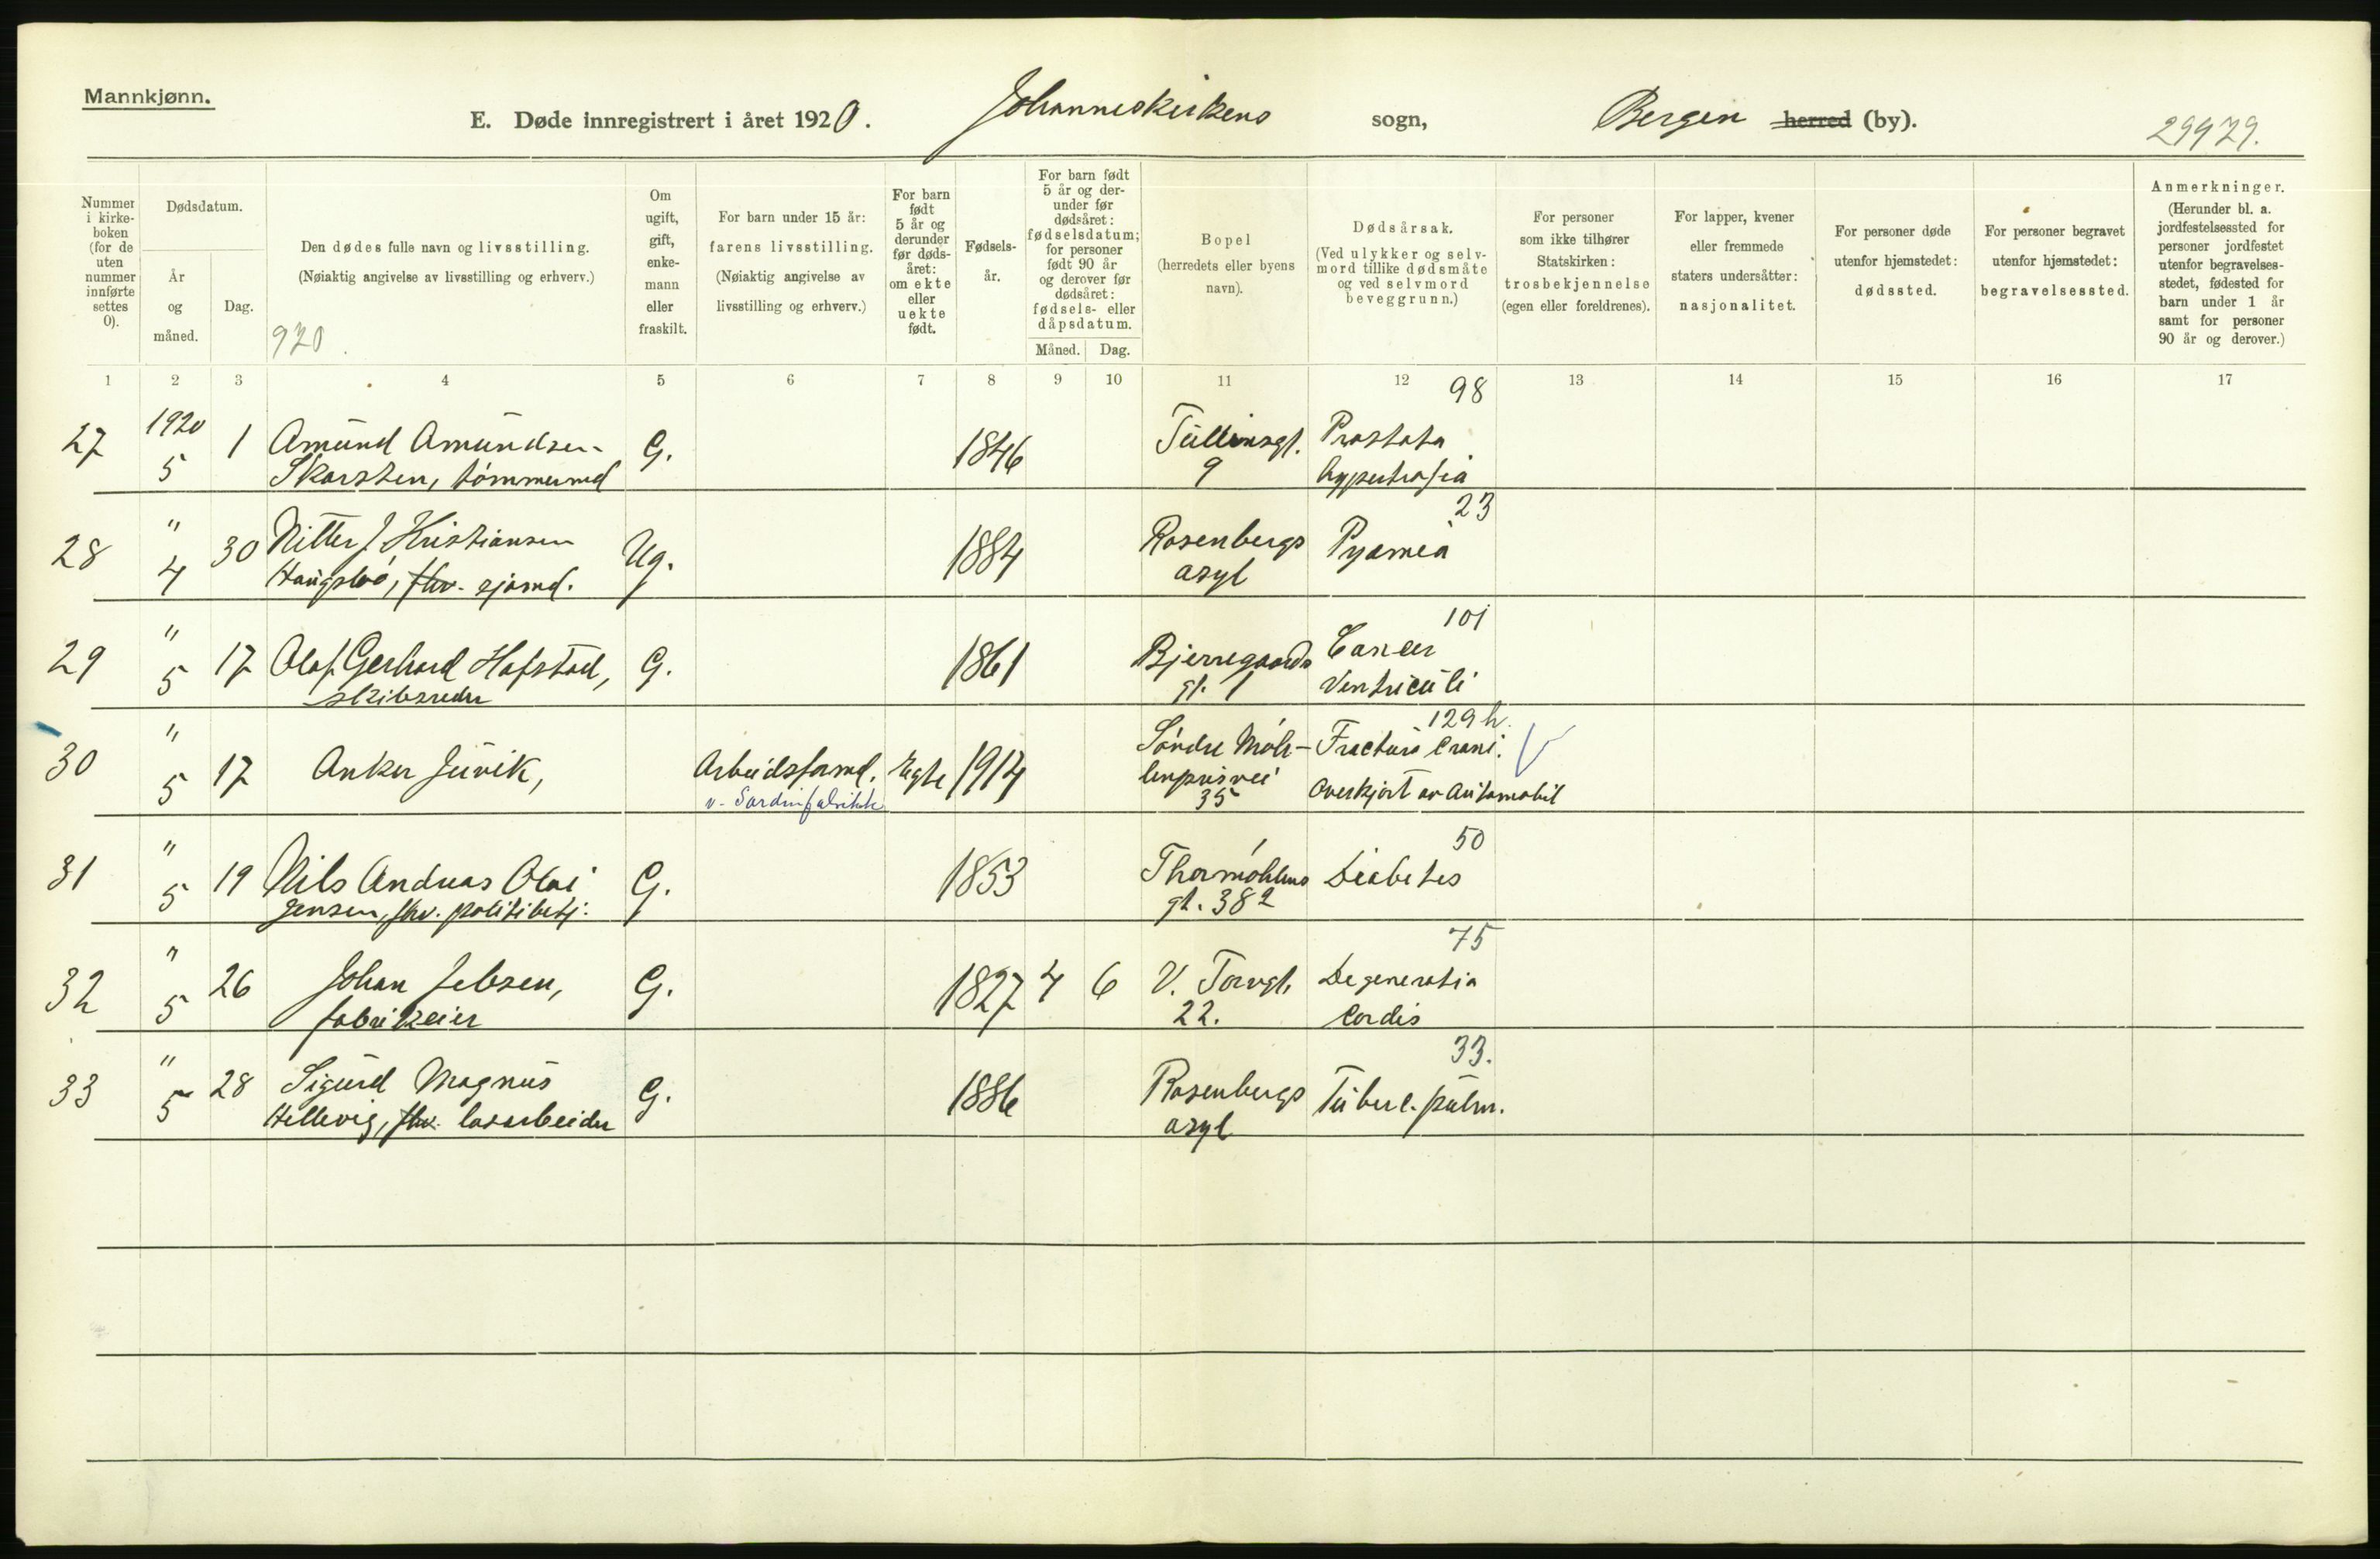 Mannkjønn.
E. Døde innregistrert i året 1920. Johanneskirkens sogn, Bergen herred (by). 29979.
Nummer i kirke-boken (for de uten nummer innførte settes 0).
Dødsdatum.
År og måned.
Dag.
Den dødes fulle navn og livsstilling.
(Nøiaktig angivelse av livsstilling og erhverv.)
920.
Om ugift, gift, enke-mann eller fraskilt.
For barn under 15 år:
farens livsstilling.
(Nøiaktig angivelse av
livsstilling og erhverv.)
For barn født 5 år og derunder før døds-året: om ekte eller uekte født.
Fødsels-år.
For barn født 5 år og der-under før dødsåret: fødselsdatum; for personer født 90 år og derover før dødsåret: fødsels- eller dåpsdatum.
Måned. Dag.
Bopel
(herredets eller byens navn).
Dødsårsak.
(Ved ulykker og selv-mord tillike dødsmåte og ved selvmord beveggrunn.)
For personer som ikke tilhører Statskirken:
trosbekjennelse
(egen eller foreldrenes).
For lapper, kvener eller fremmede staters undersåtter:
nasjonalitet.
For personer døde utenfor hjemstedet:
dødssted.
For personer begravet utenfor hjemstedet:
begravelsessted.
Anmerkninger.
(Herunder bl. a. jordfestelsessted for personer jordfestet utenfor begravelses-stedet, fødested for barn under 1 år samt for personer 90 år og derover.)
1 2 3 4 5 6 7 8 9 10 11 12 13 14 15 16 17
98
27 1920 5 1 Amund Amundsen G. 1846 Tullinsgt. Prostata
Skarsten, tömmermd 9 hypertrofia
23
28 " 4 30 Nitter J Kristiansen Ug. 1884 Rosenbergs Pyæmia
fhv. sjømd. asyl
101
29 " 5 17 Olaf Gerhard Hafstad, G. 1861 Bjerregaards Cancer
skibsreder gt. 1 Ventriculi
129 h.
30 " 5 17 Anker Juvik, Arbeidsformd. Egte 1914 Söndre Möh- Fractura Crani.
v. Sardinfabrikk lenprisvei
35 Overkjört av Automobil
50
31 " 5 19 Nils Andreas Olai G. 1853 Thormöhlens Diabetes
Jensen, fhv. politibetj. gt. 38 2
75
32 " 5 26 Johan Jebsen, G. 1827 4 6 V. Torvgt. Degeneratia
fabrikeier 22. Cordis
33.
33 " 5 28 Sigurd Magnus G. 1886 Rosenbergs Tuberc. pulm.
Hellevig, fhv. løsarbeider asyl